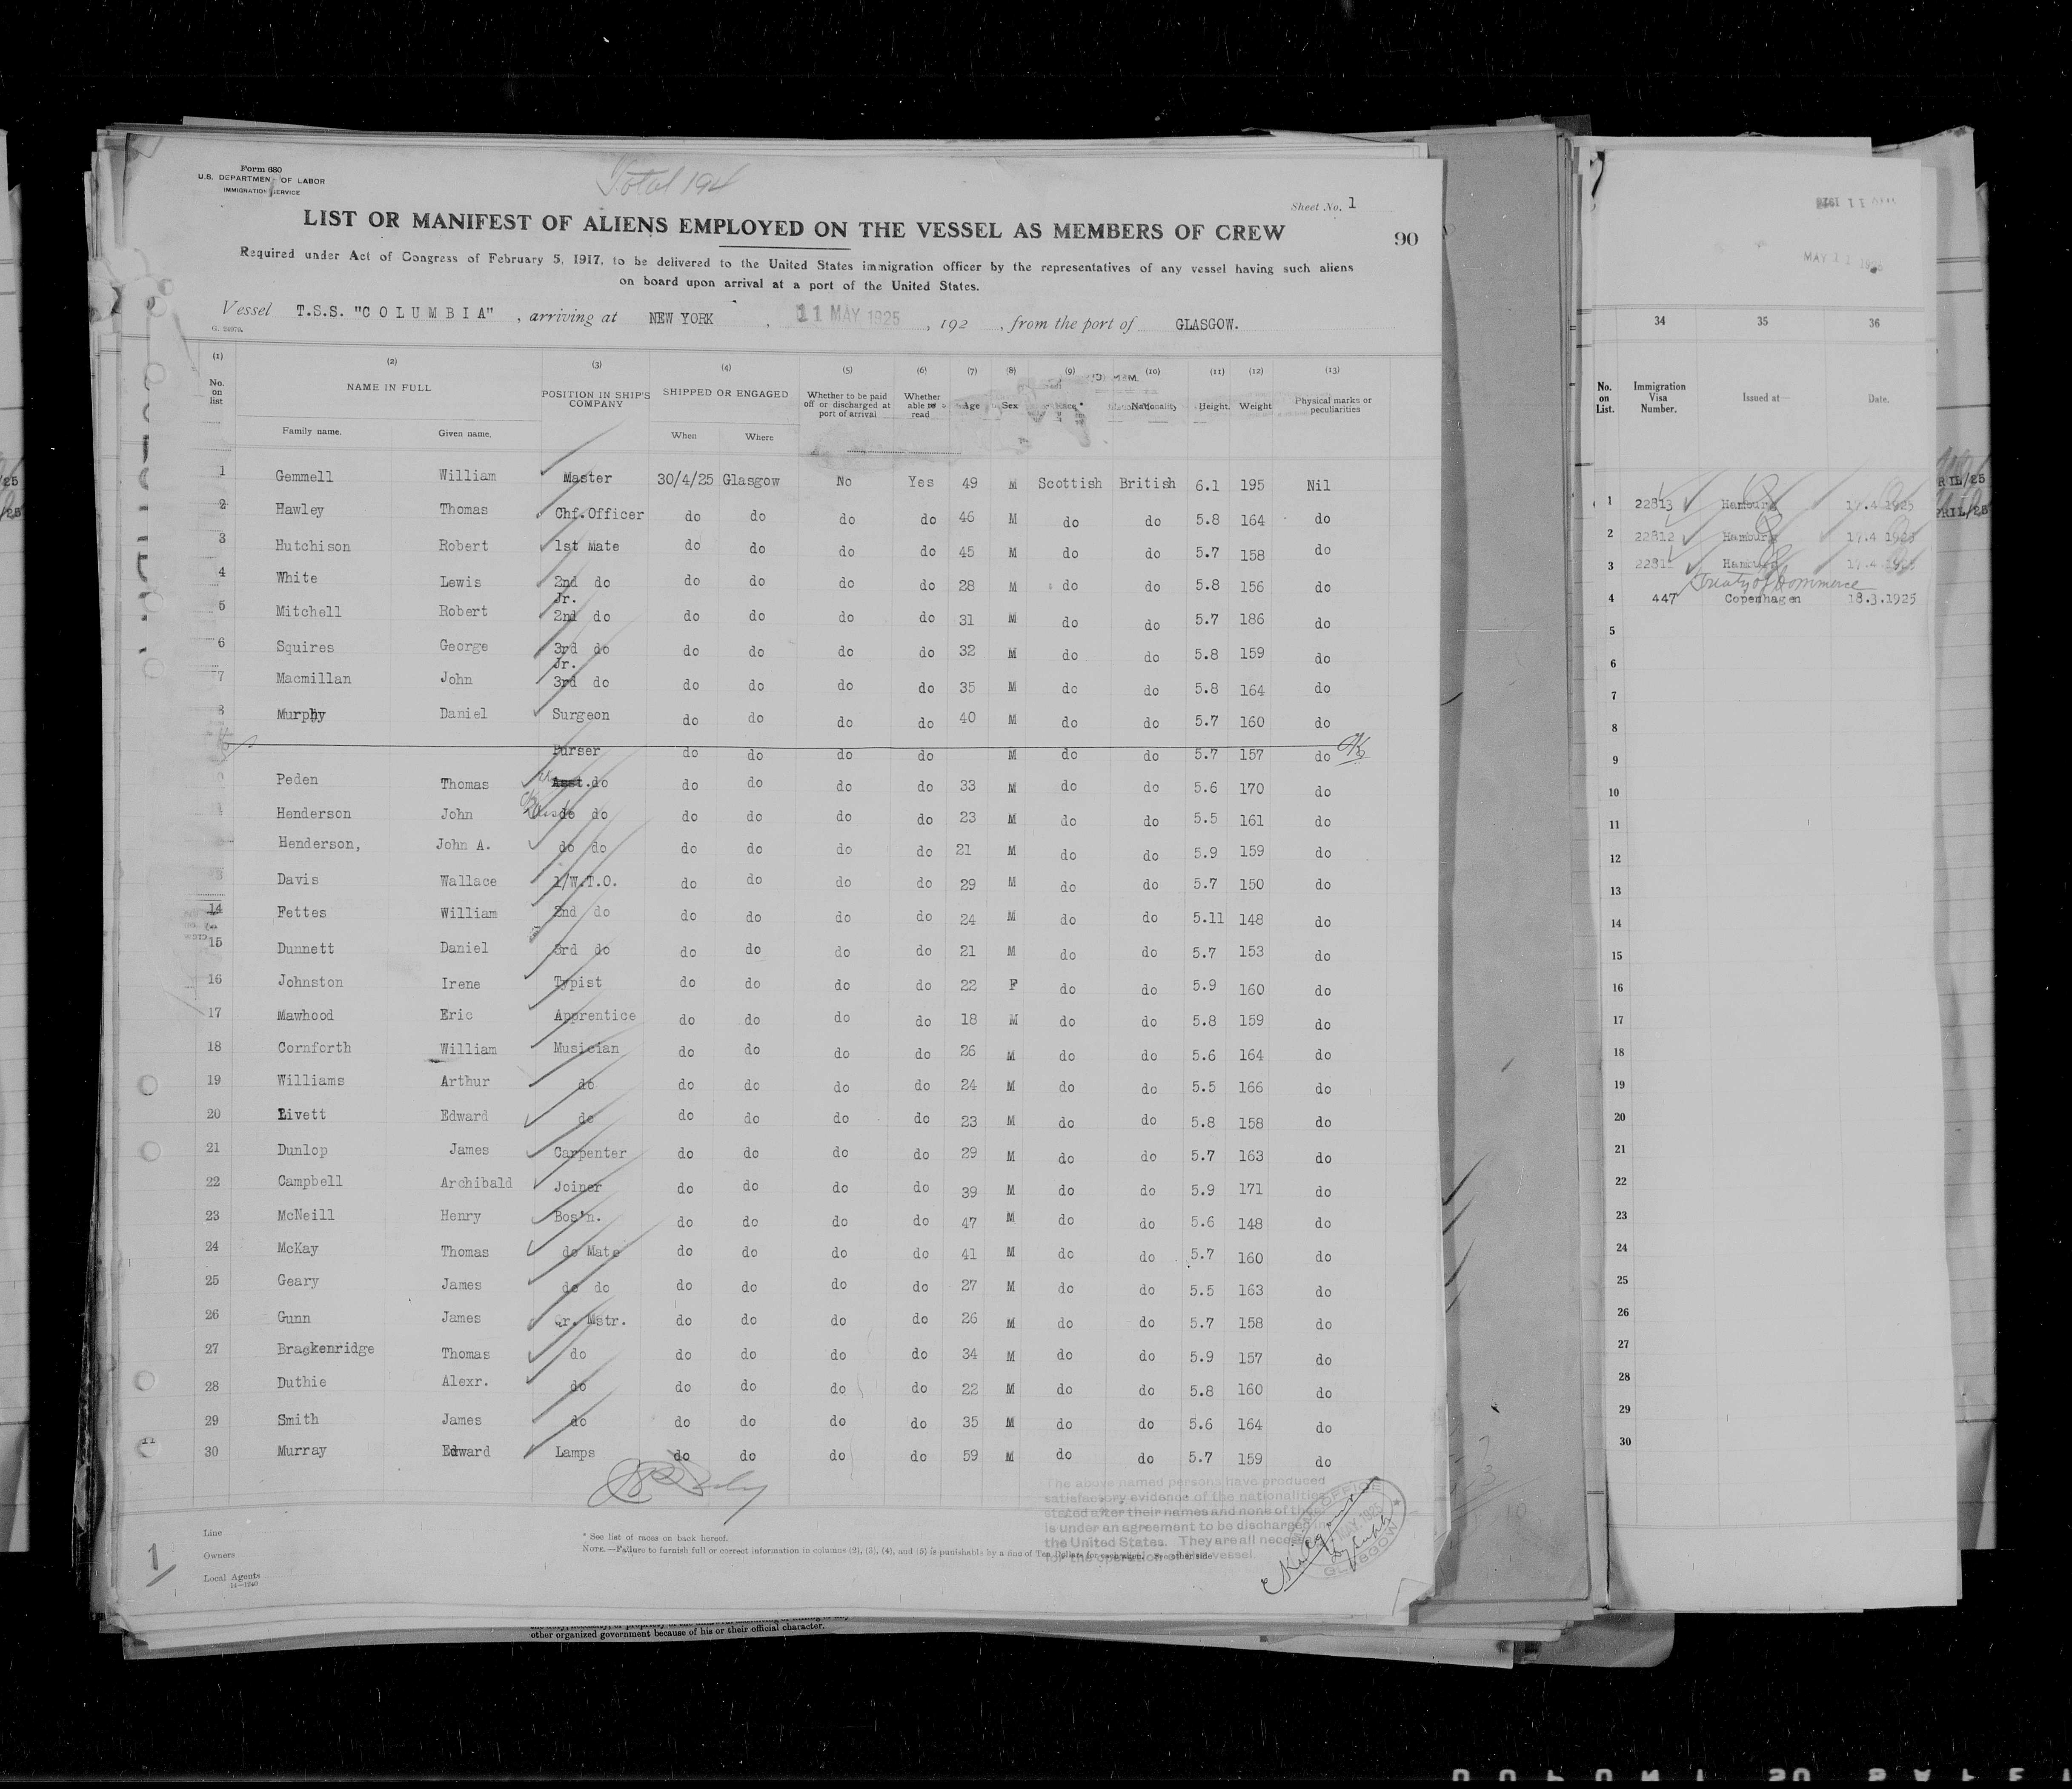 Form 680
U.S. DEPARTMENT OF LABOR
IMMIGRATION SERVICE
Total 194
Sheet No. 1
LIST OR MANIFEST OF ALIENS EMPLOYED ON THE VESSEL AS MEMBERS OF CREW
90
Required under Act of Congress of February 5, 1917, to be delivered to the United States immigration officer by the representatives of any vessel having such aliens
on board upon arrival at a port of the United States.
Vessel T.S.S. "COLUMBIA" , arriving at NEW YORK , 11 MAY 1925 , 192 , from the port of GLASGOW.
(1) (2) (3) (4) (5) (6) (7) (8) (9) (10) (11) (12) (13)
No. on list NAME IN FULL POSITION IN SHIP'S COMPANY SHIPPED OR ENGAGED Whether to be paid off or discharged at port of arrival Whether able to read Age Sex Race* Nationality Height. Weight Physical marks or peculiarities
Family name. Given name. When Where
1 Gemmell William Master 30/4/25 Glasgow No Yes 49 M Scottish British 6.1 195 Nil
2 Hawley Thomas Chf.Officer do do do do 46 M do do 5.8 164 do
3 Hutchison Robert 1st Mate do do do do 45 M do do 5.7 158 do
4 White Lewis 2nd do do do do do 28 M do do 5.8 156 do
5 Mitchell Robert Jr. 2nd do do do do do 31 M do do 5.7 186 do
6 Squires George 3rd do do do do do 32 M do do 5.8 159 do
7 Macmillan John Jr. 3rd do do do do do 35 M do do 5.8 164 do
8 Murphy Daniel Surgeon do do do do 40 M do do 5.7 160 do
Purser do do do do M do do 5.7 157 do
Peden Thomas Asst.do do do do do 33 M do do 5.6 170 do
Henderson John do do do do do do 23 M do do 5.5 161 do
Henderson, John A. do do do do do do 21 M do do 5.9 159 do
Davis Wallace 1/W.T.O. do do do do 29 M do do 5.7 150 do
14 Fettes William 2nd do do do do do 24 M do do 5.11 148 do
15 Dunnett Daniel 3rd do do do do do 21 M do do 5.7 153 do
16 Johnston Irene Typist do do do do 22 F do do 5.9 160 do
17 Mawhood Eric Apprentice do do do do 18 M do do 5.8 159 do
18 Cornforth William Musician do do do do 26 M do do 5.6 164 do
19 Williams Arthur do do do do do 24 M do do 5.5 166 do
20 Livett Edward do do do do do 23 M do do 5.8 158 do
21 Dunlop James Carpenter do do do do 29 M do do 5.7 163 do
22 Campbell Archibald Joiner do do do do 39 M do do 5.9 171 do
23 McNeill Henry Bos'n. do do do do 47 M do do 5.6 148 do
24 McKay Thomas do Mate do do do do 41 M do do 5.7 160 do
25 Geary James do do do do do do 27 M do do 5.5 163 do
26 Gunn James Qr. Mstr. do do do do 26 M do do 5.7 158 do
27 Brackenridge Thomas do do do do do 34 M do do 5.9 157 do
28 Duthie Alexr. do do do do do 22 M do do 5.8 160 do
29 Smith James do do do do do 35 M do do 5.6 164 do
30 Murray Edward Lamps do do do do 59 M do do 5.7 159 do
The above named persons have produced
satisfactory evidence of the nationalities
stated after their names and none of them
is under an agreement to be discharged in
the United States. They are all necessary
for the operation of the vessel.
GLASGOW
Line
Owners
Local Agents
14—1240
1
* See list of races on back hereof.
NOTE.—Failure to furnish full or correct information in columns (2), (3), (4), and (5) is punishable by a fine of Ten Dollars for each alien. See other side
other organized government because of his or their official character.
MAY 11 1925
34 35 36
No. on List. Immigration Visa Number. Issued at— Date.
1 22813 Hamburg 17.4.1925
2 22812 Hamburg 17.4.1925
3 22811 Hamburg 17.4.1925
Treaty of Commerce
4 447 Copenhagen 18.3.1925
5
6
7
8
9
10
11
12
13
14
15
16
17
18
19
20
21
22
23
24
25
26
27
28
29
30